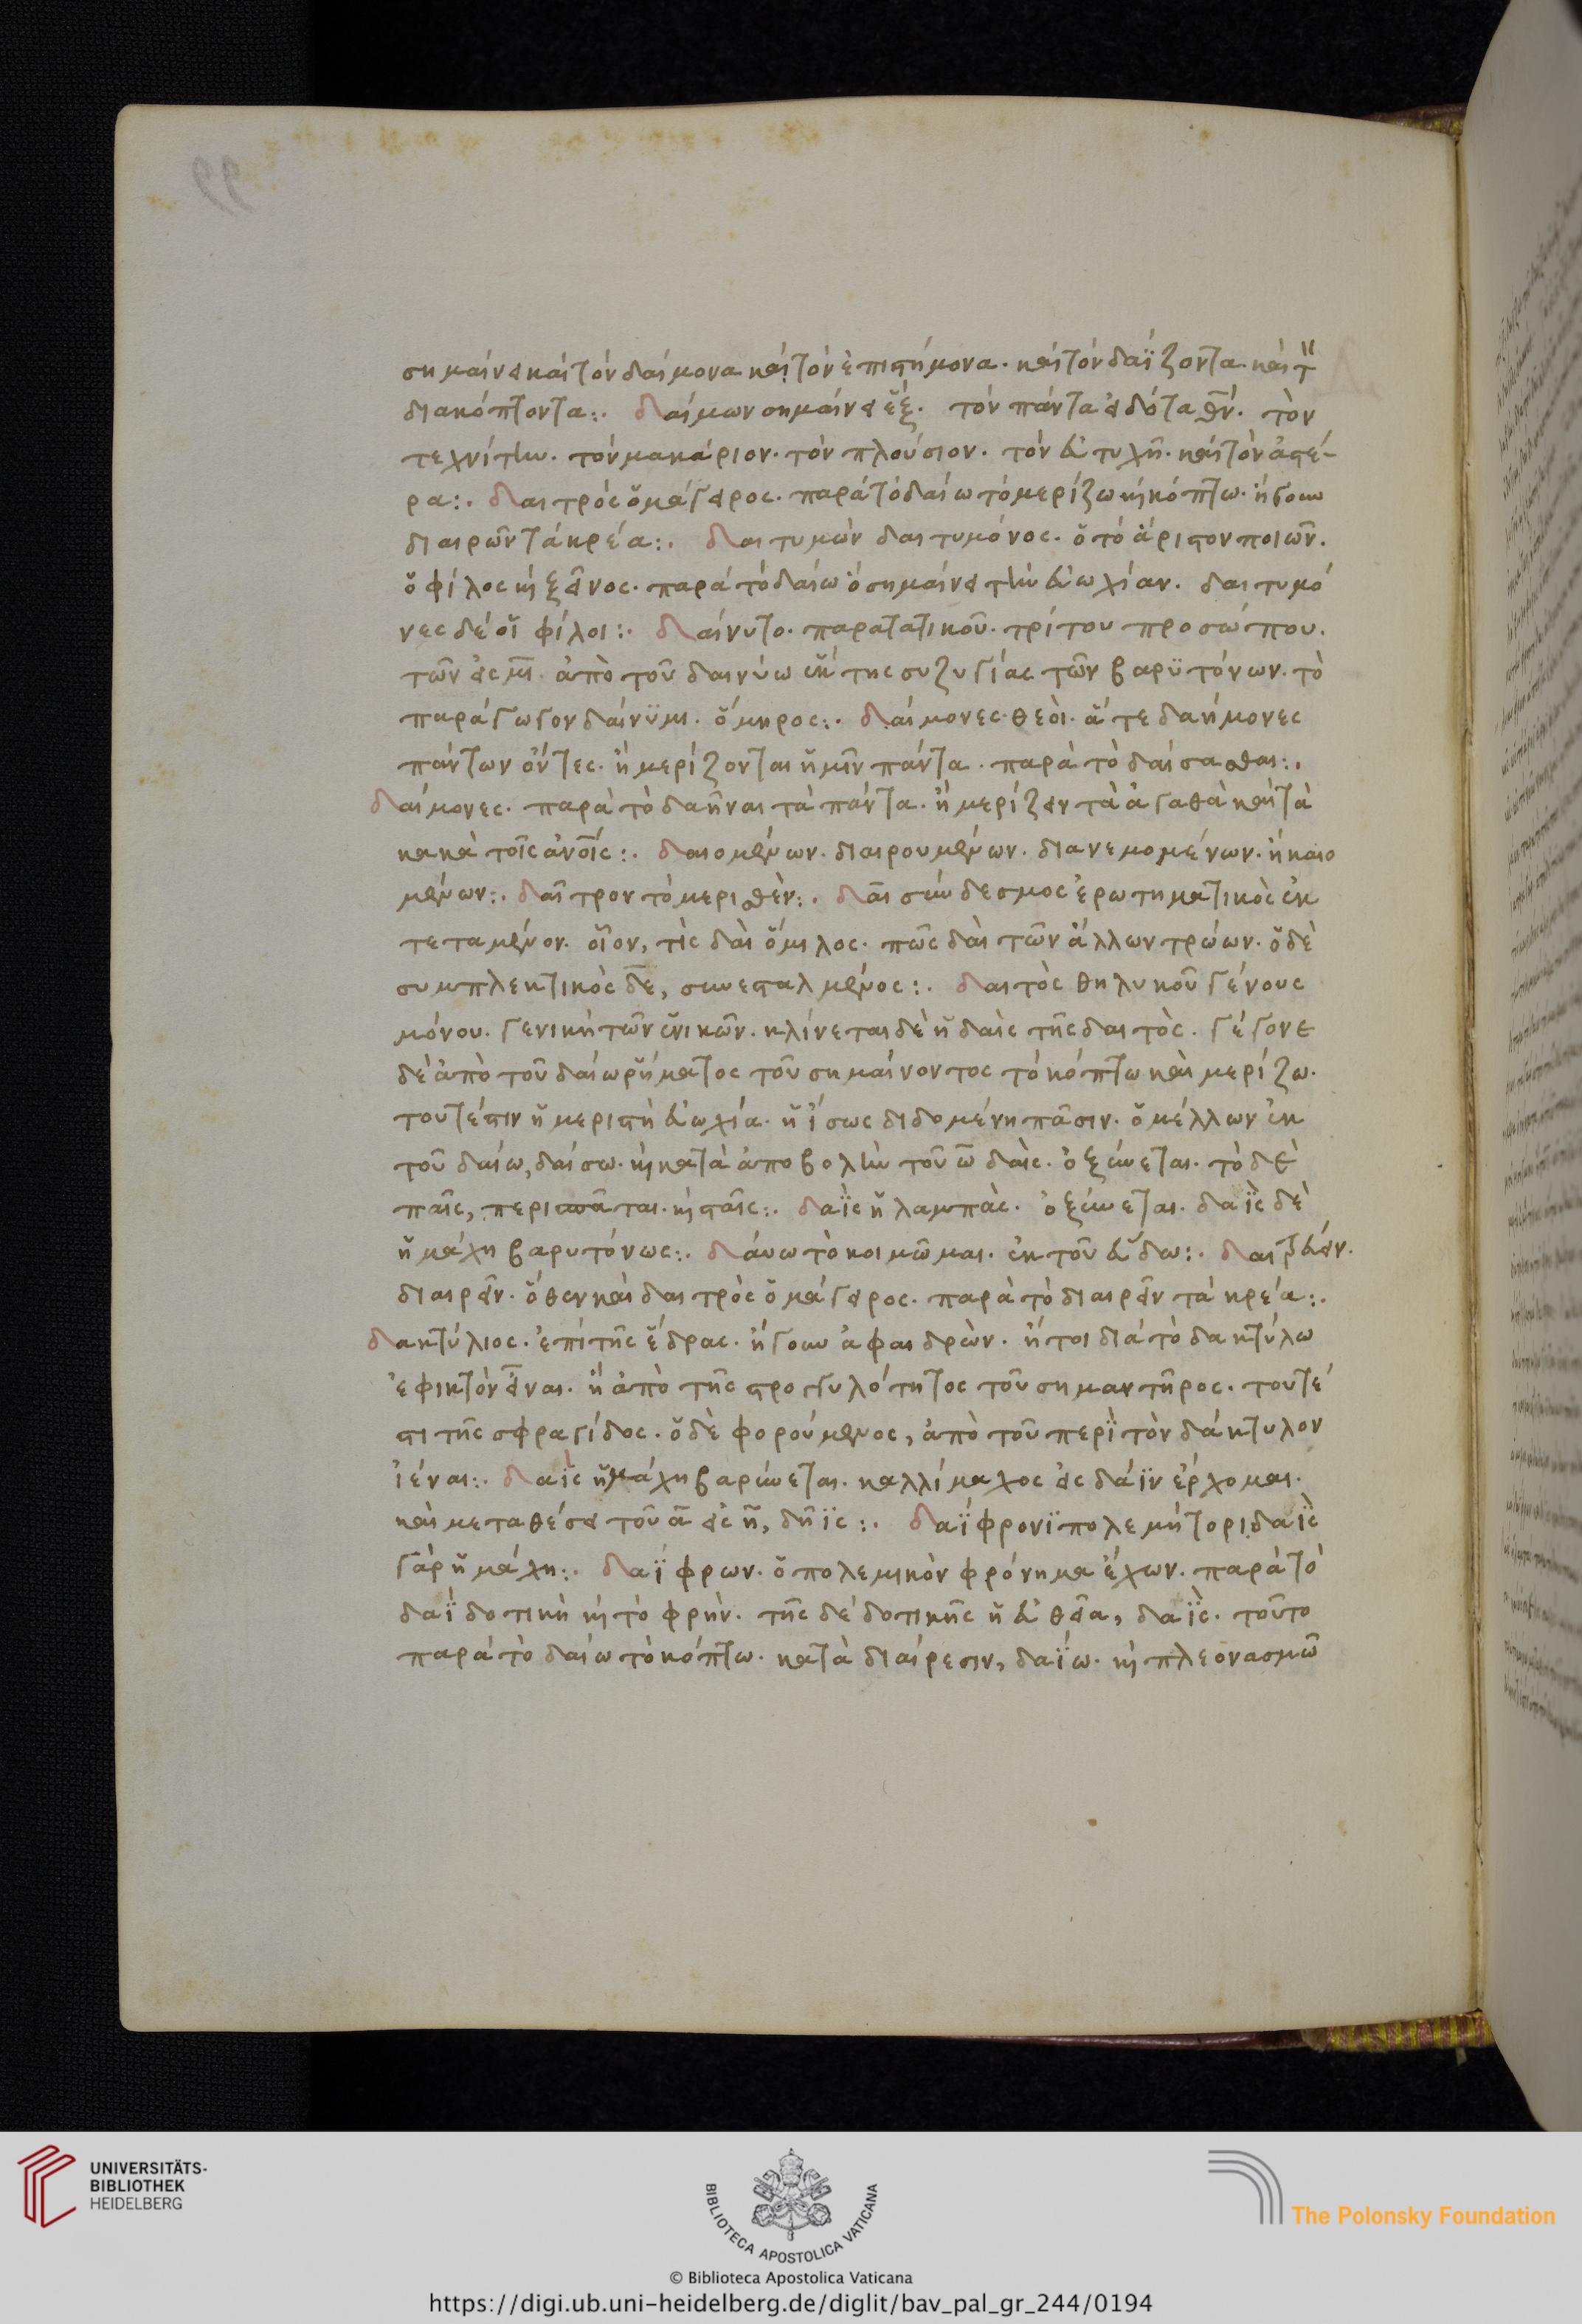 σημαίνει καὶ τὸν δαίμονα καὶ τὸν ἐπιστήμονα· καὶ τὸν δαΐζοντα καὶ τ̏
διακόπτοντα:· δαίμων σημαίνει ἕξ· τὸν πάντα εἰδότα θ̅ν̅· τὸν
τεχνίτην· τὸν μακάριον· τὸν πλούσιον· τὸν εὐτυχῆ· καὶ τὸν ἀστέ-
ρα:· δαιτρὸς ὁ μάγειρος· παρὰ τὸ δαίω τὸ μερίζω κὴ κόπτω· ἤγουν
διαιρῶν τὰ κρέα:· δαιτυμὼν δαιτυμόνος· ὁ τὸ ἄριστον ποιῶν·
ὁ φίλος κὴ ξεῖνος· παρὰ τὸ δαίω ὃ σημαίνει τὴν εὐωχίαν· δαιτυμό
νες δὲ οἱ φίλοι:· δαίνυτο· παρατατικοῦ· τρίτου προσώπου·
τῶν εἰς μ̅ι̅· ἀπὸ τοῦ δαινύω ἕκτης συζυγίας τῶν βαρϋτόνων· τὸ
παράγωγον δαίνϋμι· ὅμηρος:· δαίμονες· θεοὶ· ἅτε δαήμονες
πάντων ὄντες· ἢ μερίζονται ἡμῖν πάντα· παρὰ τὸ δαίσασθαι:·
δαίμονες· παρὰ τὸ δαῆναι τὰ πάντα· ἢ μερίζειν τὰ ἀγαθὰ καὶ τὰ
κακὰ τοῖς ἀν̅ο̅ι̅ς:· δαιομένων· διαιρουμένων· διανεμομένων· ἢ καιο
μένων:· δαῖτρον τὸ μερισθὲν:· δαῖ σύνδεσμος ἐρωτηματικὸς ἐκ
τεταμένον· οἷον, τὶς δαὶ ὅμιλος· πῶς δαὶ τῶν ἄλλων τρώων· ὁ δὲ
συμπλεκτικὸς δ̅ε̅, συνεσταλμένος:· δαιτὸς θηλυκοῦ γένους
μόνου· γενικὴ τῶν ἑνικῶν· κλίνεται δὲ ἡ δαὶς τῆς δαιτὸς· γέγονε
δὲ ἀπὸ τοῦ δαίω ῥήματος τοῦ σημαίνοντος τὸ κόπτω καὶ μερίζω·
τουτέστιν ἡ μεριστὴ εὐωχία· ἡ ἴσως διδομένη πᾶσιν· ὁ μέλλων ἐκ
τοῦ δαίω, δαίσω· κὴ κατὰ ἀποβολὴν τοῦ ω̅ δαὶς· ὀξύνεται· τὸ δὲ
παῖς, περισπᾶται· κὴ σταῖς:· δαῒς ἡ λαμπὰς· ὀξύνεται· δαῒς δὲ
ἡ μάχη βαρυτόνως:· δάυω τὸ κοιμῶμαι· ἐκ τοῦ εὕδω:· δαιτρεύειν·
διαιρεῖν· ὅθεν καὶ δαιτρὸς ὁ μάγειρος· παρὰ τὸ διαιρεῖν τὰ κρέα:·
δακτύλιος· ἐπὶ τῆς ἕδρας· ἤγουν ἀφαιδρὼν· ἤτοι διὰ τὸ δακτύλω
ἐφικτὸν εἶναι· ἢ ἀπὸ τῆς στρογγυλότητος τοῦ σημαντῆρος· τουτέ
στι τῆς σφραγίδος· ὁ δὲ φορούμενος, ἀπὸ τοῦ περῒ τὸν δάκτυλον
ἰέναι:· δαῒς ἡ μάχη βαρύνεται· καλλίμαχος εἰς δάϊν ἔρχομαι·
καὶ μεταθέσει τοῦ α̅ εἰς η̅, δῆϊς:· δαΐφρονϊ πολεμήτορι δαῒς
γὰρ ἡ μάχη:· δαΐφρων· ὁ πολεμικὸν φρόνημα ἔχων· παρὰ τὸ
δαΐ δοτικὴ κὴ τὸ φρὴν· τῆς δὲ δοτικῆς ἡ εὐθεῖα, δαῒς· τοῦτο
παρὰ τὸ δαίω τὸ κόπτω· κατὰ διαίρεσιν, δαΐω· κὴ πλεονασμῶ
UNIVERSITÄTS-
BIBLIOTHEK
HEIDELBERG
BIBLIOTECA APOSTOLICA VATICANA
The Polonsky Foundation
© Biblioteca Apostolica Vaticana
https://digi.ub.uni-heidelberg.de/diglit/bav_pal_gr_244/0194